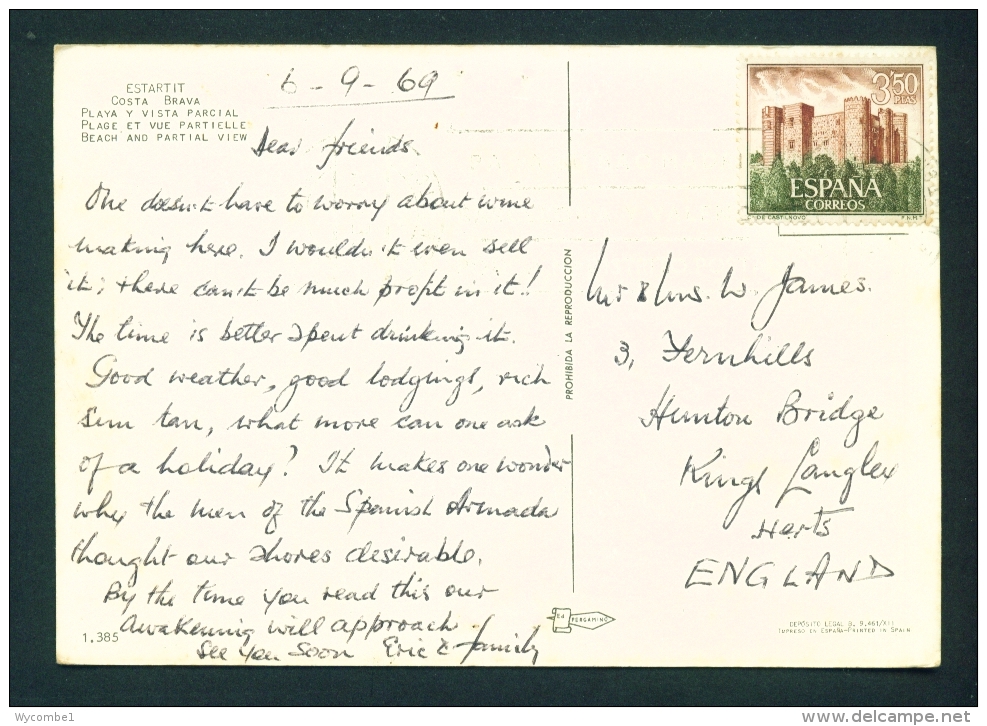 ESTARTIT
COSTA BRAVA
PLAYA Y VISTA PARCIAL
PLAGE ET VUE PARTIELLE
BEACH AND PARTIAL VIEW
6-9-69
Dear friends
One doesn't have to worry about wine
making here. I wouldn't even sell
it; there can't be much profit in it!!
The time is better spent drinking it.
Good weather, good lodgings, rich
sun tan, what more can one ask
of a holiday? It makes one wonder
why the men of the Spanish Armada
thought our shores desirable.
By the time you read this our
awakening will approach
See you soon Eric & family
1.385
PROHIBIDA LA REPRODUCCION
Ed PERGAMINO
3'50
PTAS
ESPAÑA
CORREOS
DE CASTILNOVO
F.N.M.T
Mr & Mrs. W. James.
3, Fernhills
Hunton Bridge
Kings Langley
Herts
ENGLAND
DEPÓSITO LEGAL B. 91461/XII
IMPRESO EN ESPAÑA-PRINTED IN SPAIN
Wycombe1
delcampe.net